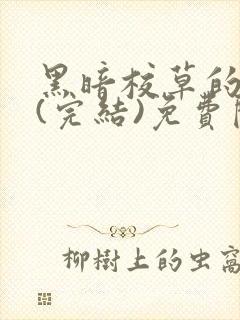 黑暗校草的
(完結)免費
柳樹上的虫窩